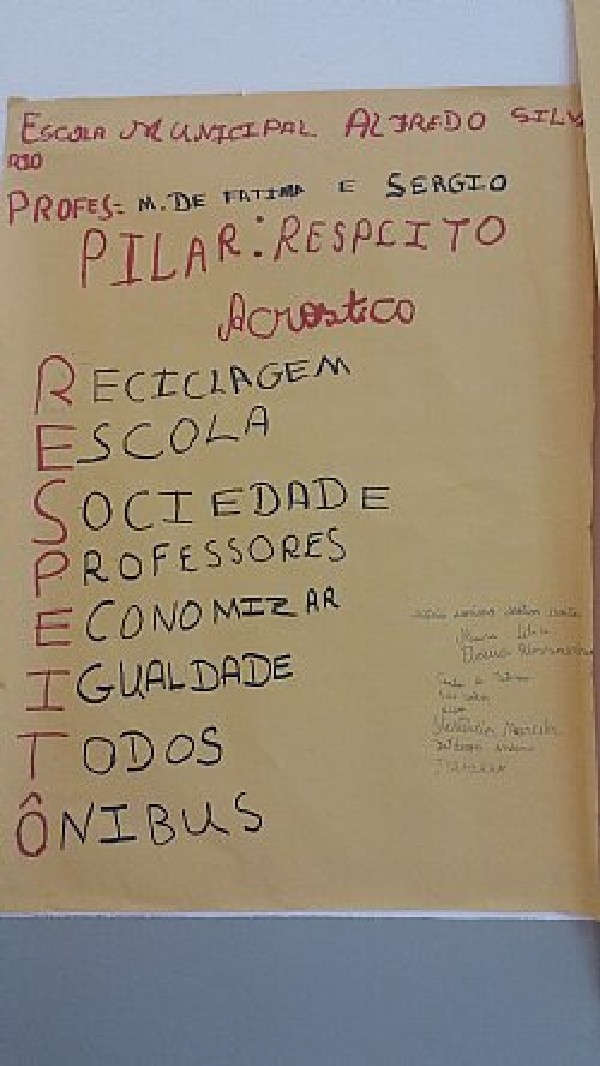 ESCOLA MUNICIPAL ALFREDO SILV
RIO
PROFES- M. DE FATIMA E SERGIO
PILAR: RESPEITO
Acrostico
RECICLAGEM
ESCOLA
SOCIEDADE
PROFESSORES
ECONOMIZAR
IGUALDADE
TODOS
ÔNIBUS